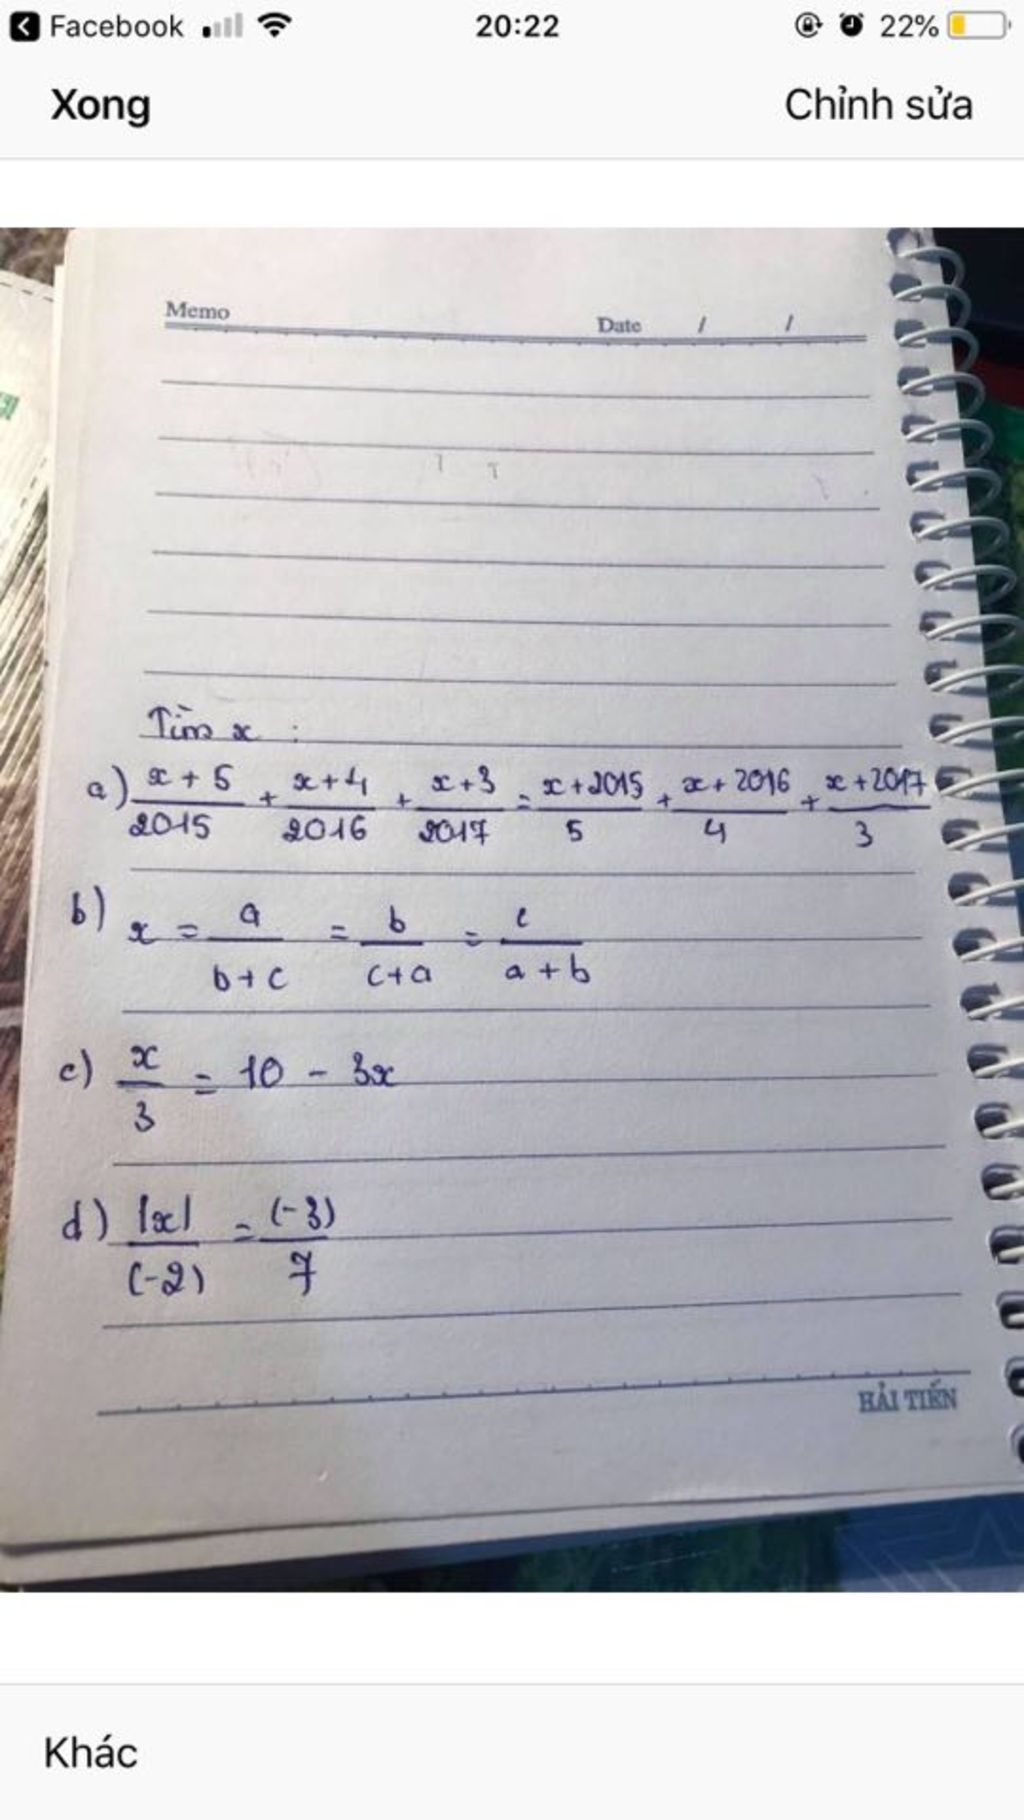 Facebook 20:22 22%
Xong Chỉnh sửa
Memo Date / /
Tìm x :
a) \frac{x+5}{2015} + \frac{x+4}{2016} + \frac{x+3}{2017} = \frac{x+2015}{5} + \frac{x+2016}{4} + \frac{x+2017}{3}
b) x = \frac{a}{b+c} = \frac{b}{c+a} = \frac{c}{a+b}
c) \frac{x}{3} = 10 - 3x
d) \frac{|x|}{(-2)} = \frac{(-3)}{7}
HẢI TIẾN
Khác